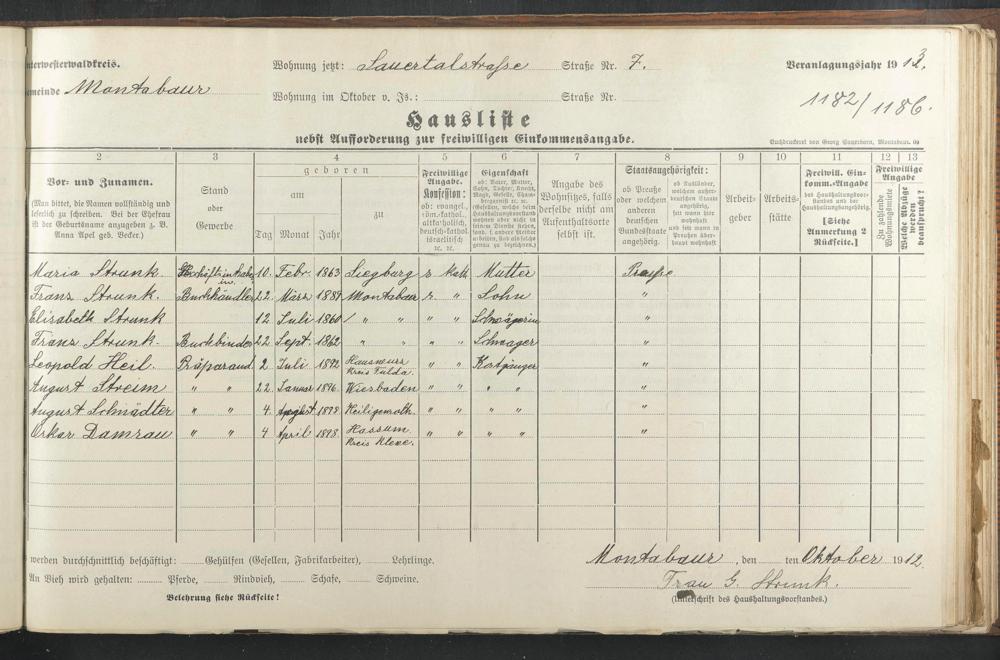 nterwesterwaldkreis.
Wohnung jetzt: Sauertalstrasse Straße Nr. 7.
Veranlagungsjahr 1913.
emeinde Montabaur
Wohnung im Oktober v. Js.: Straße Nr.
1182/1186.
Hausliste
nebst Aufforderung zur freiwilligen Einkommensangabe.
Buchdruckerei von Georg Sauerborn, Montabaur. 09
2 3 4 5 6 7 8 9 10 11 12 13
Vor- und Zunamen.
(Man bittet, die Namen vollständig und
leserlich zu schreiben. Bei der Ehefrau
ist der Geburtsname anzugeben z. B.
Anna Apel geb. Becker.)
Stand
oder
Gewerbe
geboren
am
zu
Tag Monat Jahr
Freiwillige
Angabe.
Konfession:
ob: evangel.,
röm.-kathol.,
altkatholisch,
deutsch-kathol.
israelitisch
ec. ec.
Eigenschaft
ob: Vater, Mutter,
Sohn, Tochter, Knecht,
Magd, Geselle,
Angabe des
Wohnsitzes, falls
derselbe nicht am
Aufenthaltsorte
selbst ist.
Staatsangehörigkeit:
ob Preuße
oder welchem
anderen
deutschen
Bundesstaate
angehörig.
ob Ausländer,
welchem außer-
deutschen Staate
angehörig,
seit wann hier
wohnhaft und
seit wann in
Preußen über-
haupt wohnhaft
Arbeit-
geber
Arbeits-
stätte
Freiwill. Ein-
komm.-Angabe
des Haushaltungsvor-
standes und der
Haushaltungsangehörig.
[Siehe
Anmerkung 2
Rückseite.]
Freiwillige
Angabe
Zu zahlende
Wohnungsmiete
Welche Abzüge
werden
beansprucht?
Maria Strunk. 10. Febr. 1863 Siegburg r. kath. Mutter Preuße
Franz Strunk. Buchhändler 22. März 1889 Montabaur r. " Sohn "
Elisabeth Strunk 12 Juli 1860 " " " " Schwägerin "
Franz Strunk. Buchbinder 22 Sept. 1862 " " " Schwager "
Leopold Heil. Präparand. 2 Juli 1892 Hauswurz Kreis Fulda. " " Kostgänger "
August Streim " " 22. Januar 1896 Wiesbaden " " " " "
August Schnädter " " 4. August 1898 Heiligenroth. " " " " "
Oskar Damrau " " 4 April 1898. Hassum. Kreis Kleve. " " " " "
werden durchschnittlich beschäftigt: Gehülfen (Gesellen, Fabrikarbeiter), Lehrlinge.
Montabaur, den ten Oktober 1912.
An Vieh wird gehalten: Pferde, Rindvieh, Schafe, Schweine.
Frau G. Strunk.
Belehrung siehe Rückseite!
(Unterschrift des Haushaltungsvorstandes.)